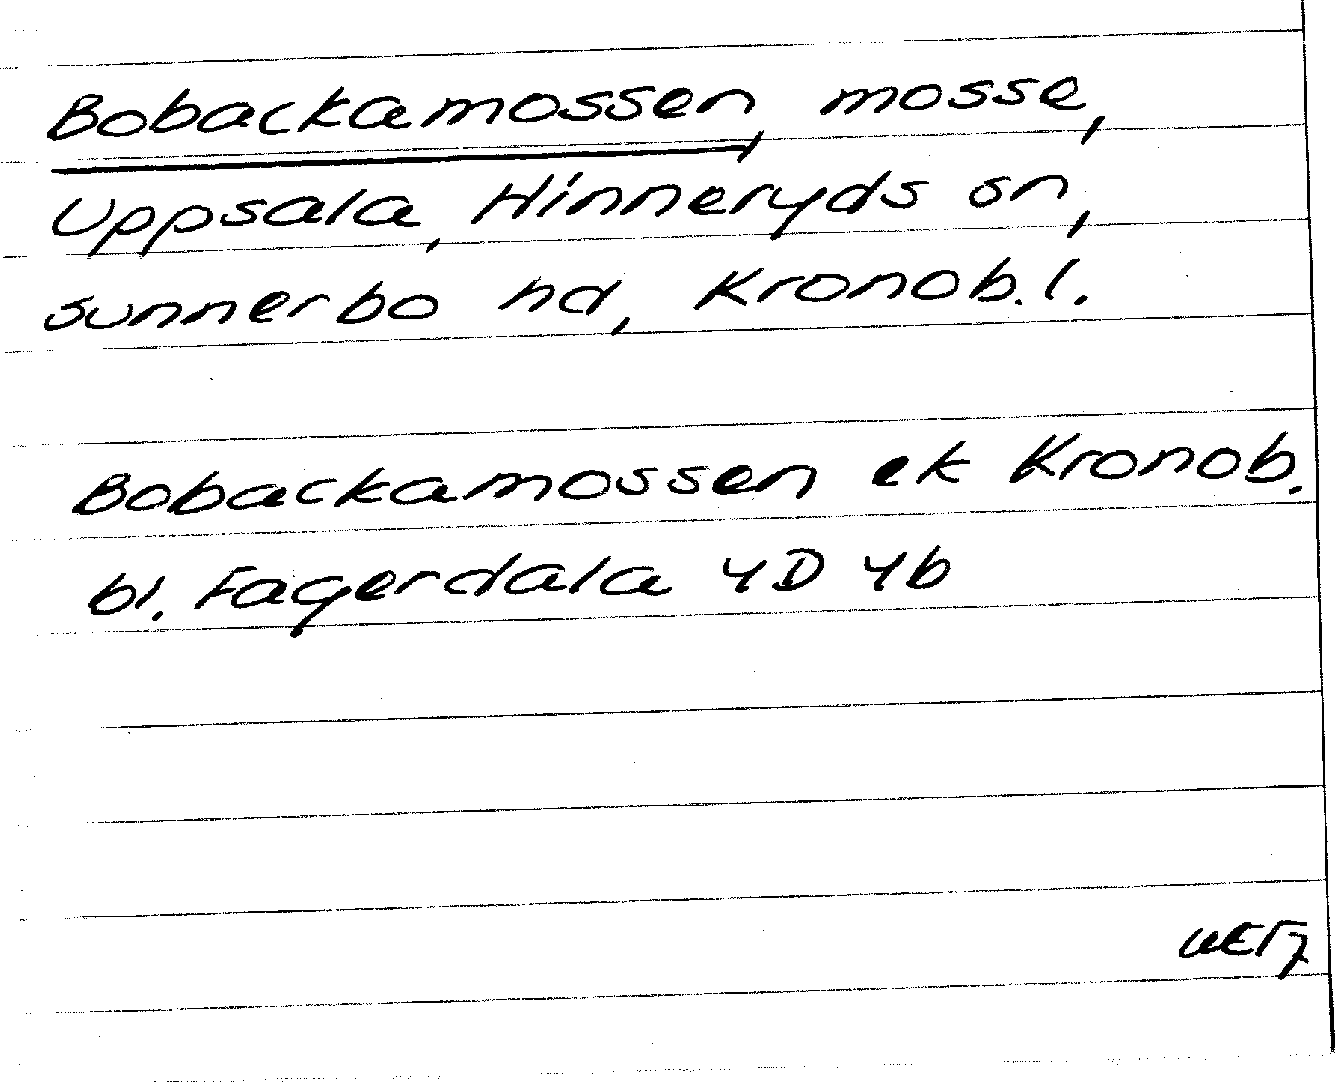 Bobackamossen, mosse,
Uppsala, Hinneryds sn,
Sunnerbo hd, Kronob. l.
Bobackamossen ek Kronob.
bl. Fagerdala 4D 4b